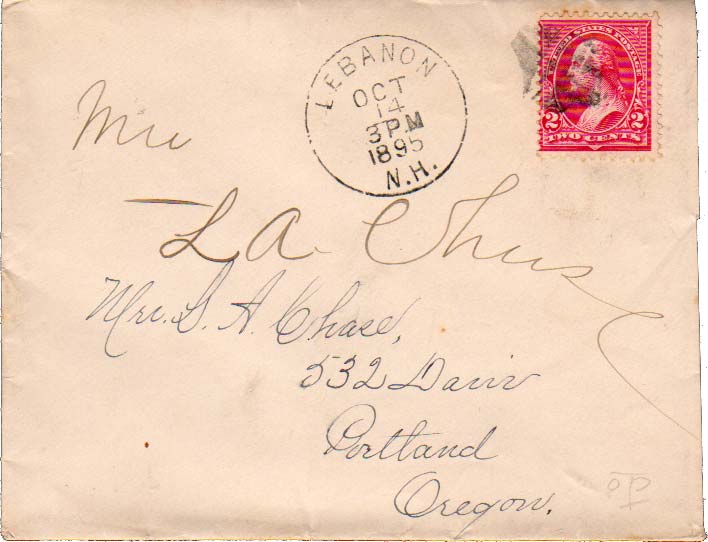 LEBANON
OCT
14
3 P.M
1895
N.H.
UNITED STATES POSTAGE
2 2
TWO CENTS
Mrs
L A. Chase
Mrs. L. A. Chase,
532 Davis
Portland
Oregon.